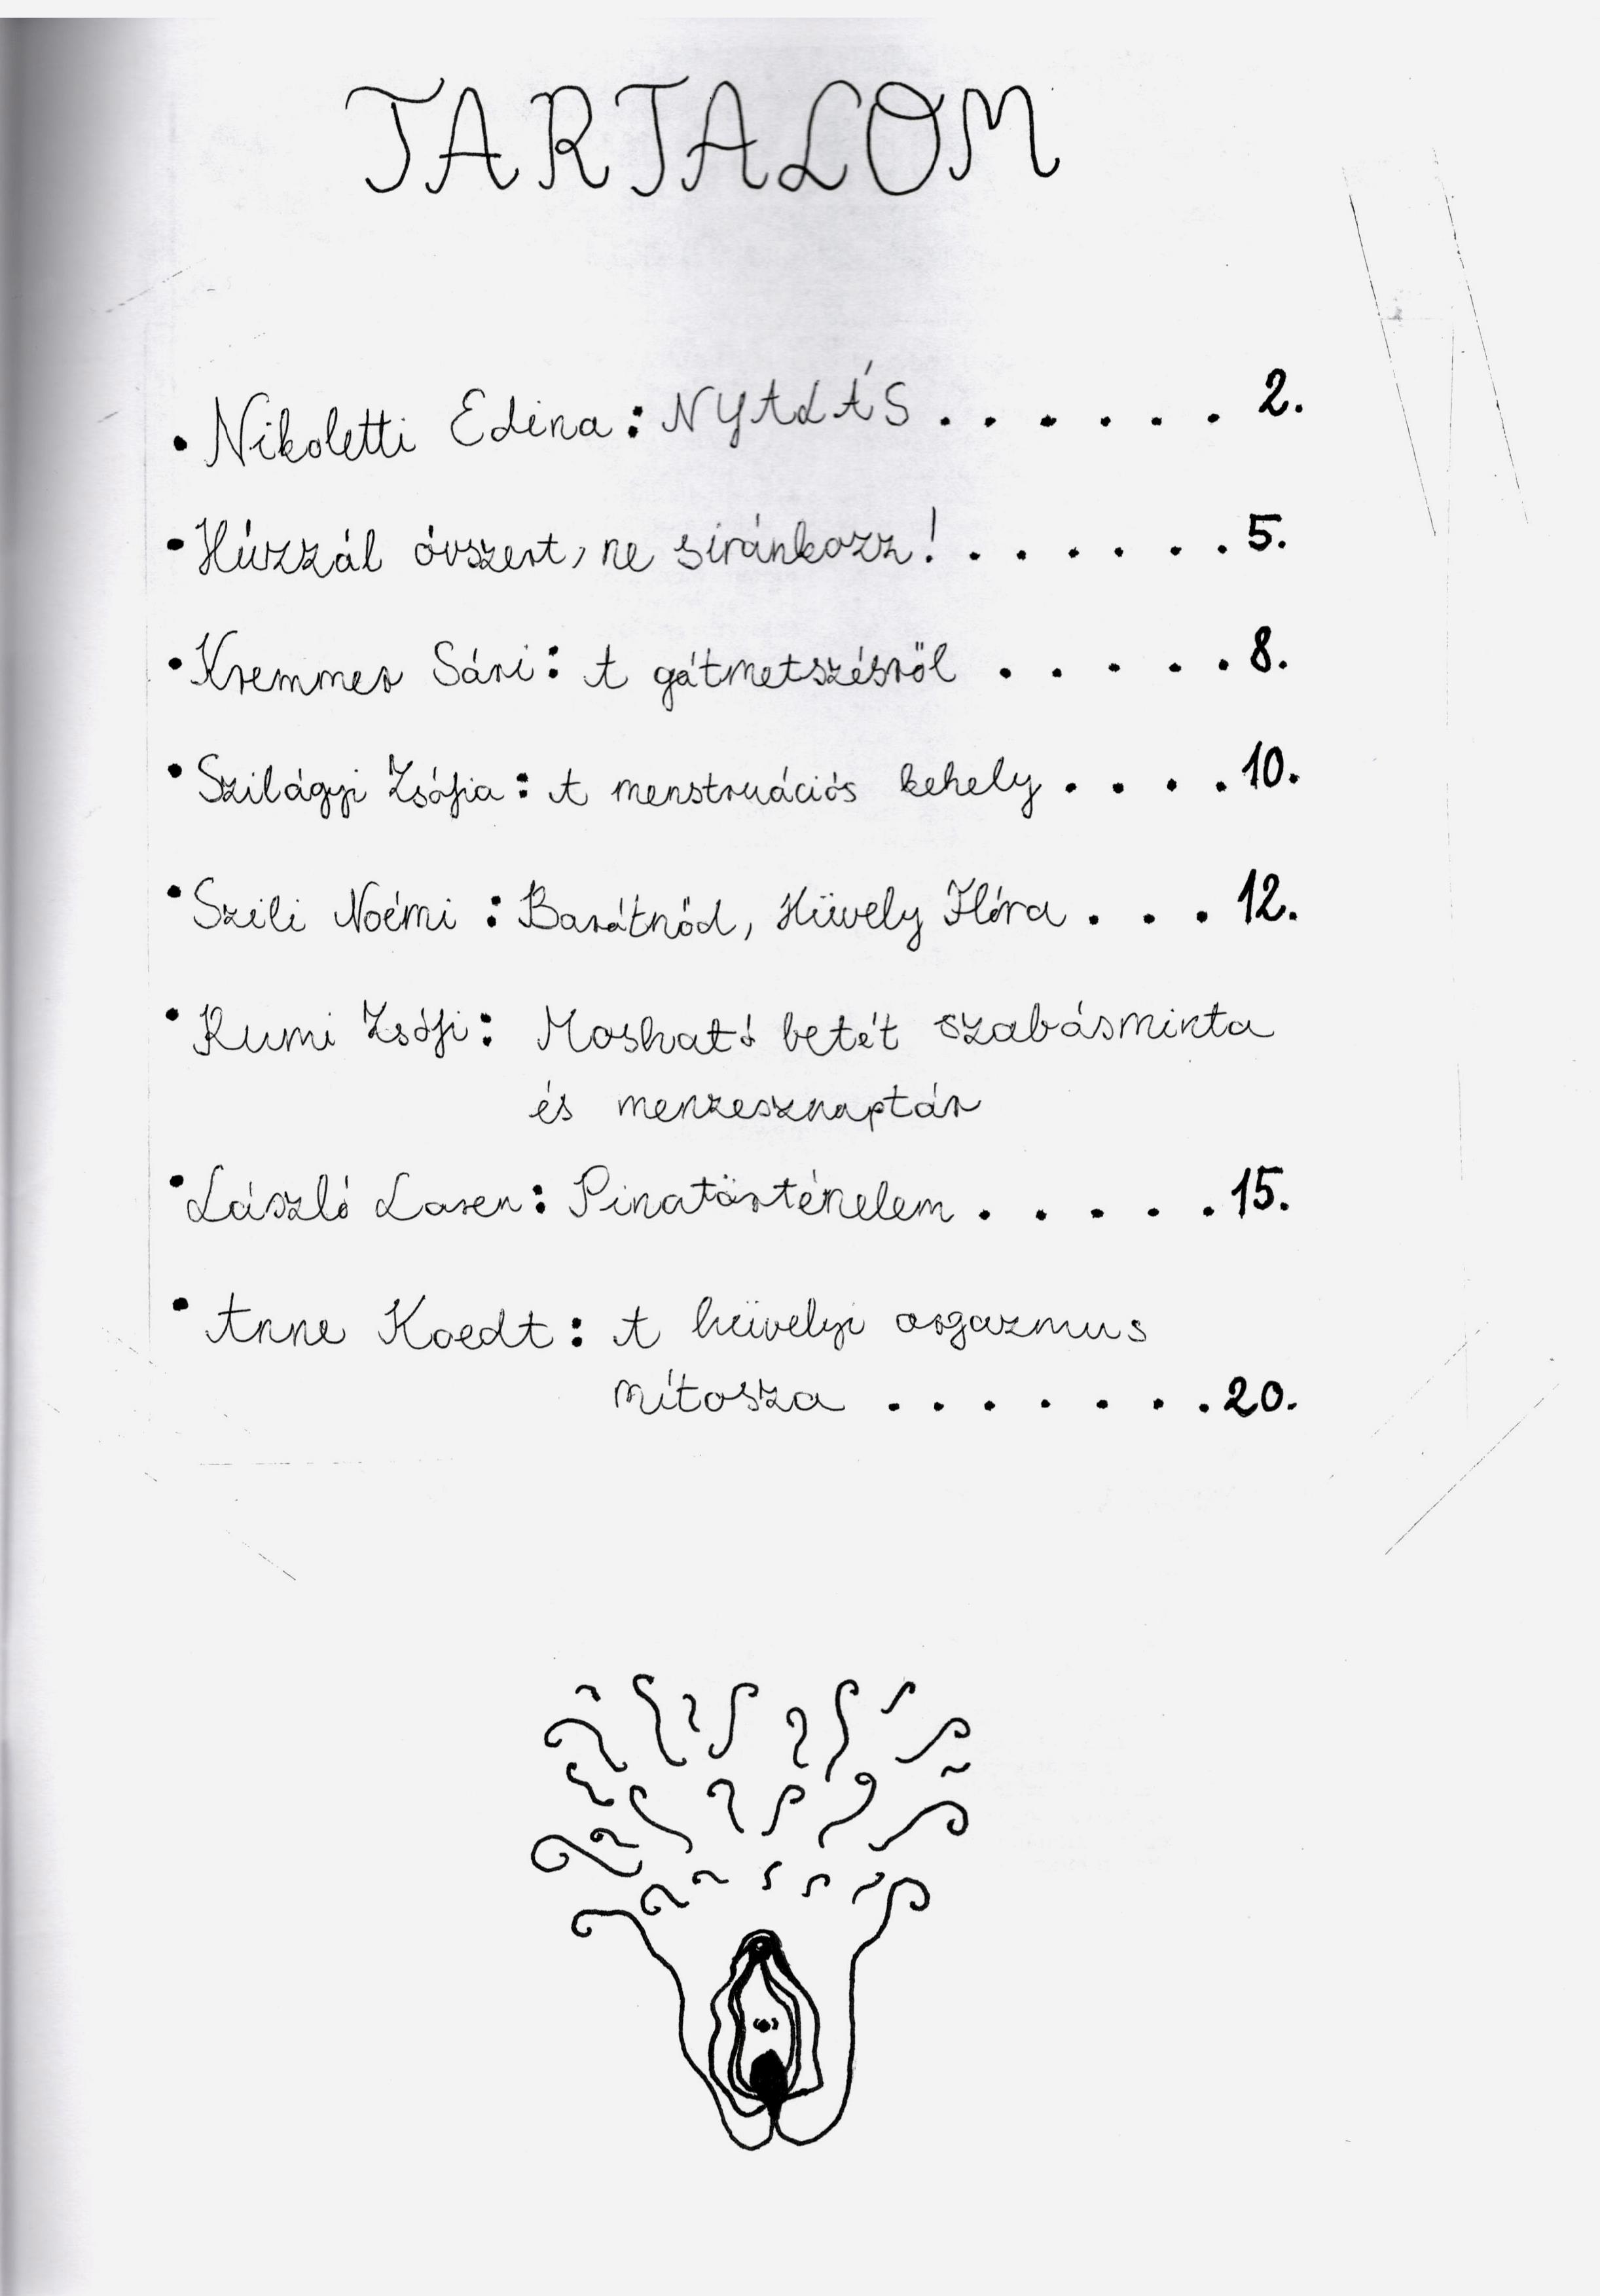 TARTALOM
• Nikoletti Edina: NYALÁS . . . . . . 2.
• Húzzál óvszert, ne siránkozz! . . . . . . 5.
• Kremmer Sári: A gátmetszésről . . . . . 8.
• Szilágyi Zsófia: A menstruációs kehely . . . . 10.
• Szili Noémi: Barátnőd, Hüvely Flóra . . . 12.
• Rumi Zsófi: Mosható betét szabásminta
és menzesznaptár
• László Loren: Pinatörténelem . . . . . 15.
• Anne Koedt: A hüvelyi orgazmus
mítosza . . . . . . . 20.